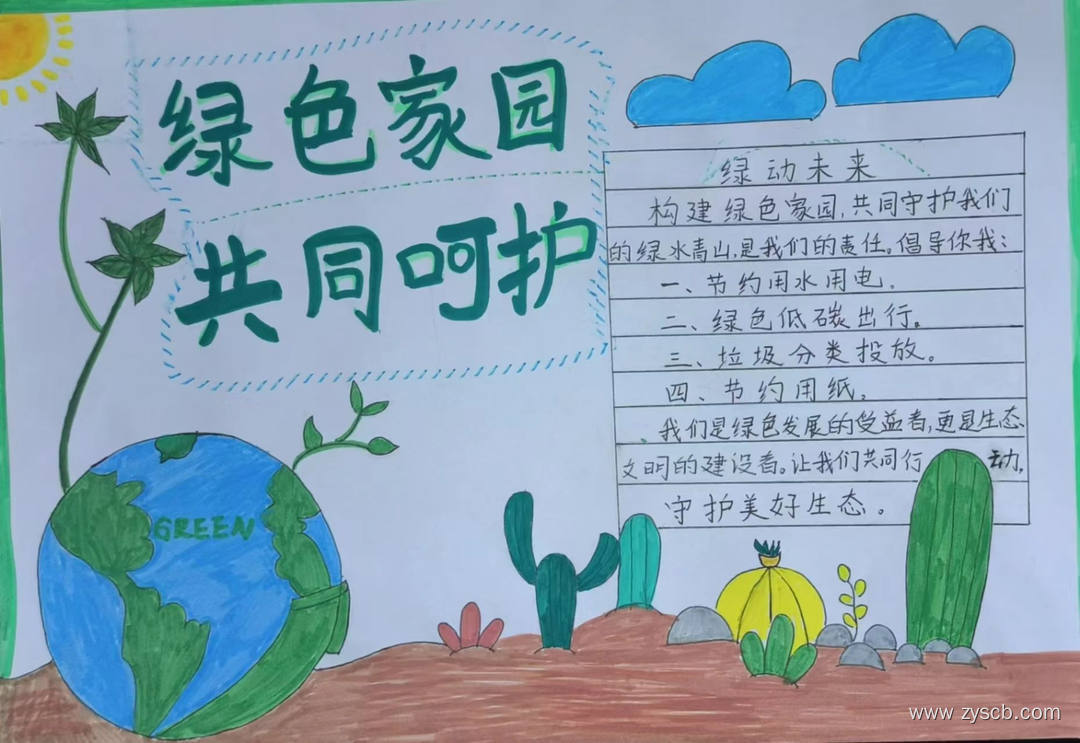 绿色家园
共同呵护
绿动未来
构建绿色家园,共同守护我们
的绿水青山,是我们的责任。倡导你我:
一、节约用水用电.
二、绿色低碳出行。
三、垃圾分类投放。
四、节约用纸。
、我们是绿色发展的受益者,更是生态
文明的建设者。让我们共同行动,
守护美好生态。
GREEN
www.zyscb.com